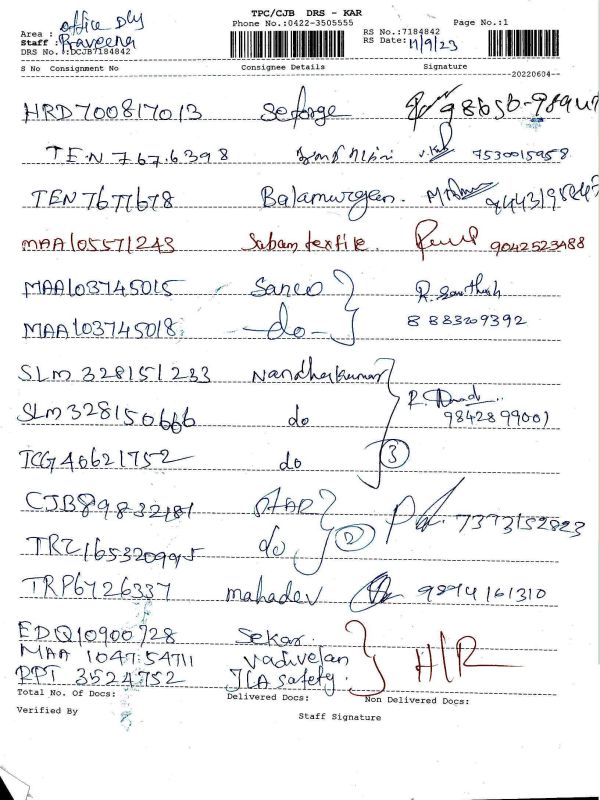 TPC/CJB DRS - KAR
Phone No.:0422-3505555 Page No.:1
Area : office Dly
Staff : Praveena
RS No.:7184842
DRS No.:DCJB7184842
RS Date: 11/9/23
S No Consignment No Consignee Details Signature
20220604
HRD700817013 Seforge
TEN 767.6398 7530015958
TEN 7677678 Balamurgan.
MAA105571243 Sabam textile. 9042523488
MAA103745015 Sanco R. Santhosh
MAA103745018 -do- 8883209392
SLM 328151233 Nandhakumar
SLM 328150666 do 9842899001
TCG40621752 do 3
CJB89832181 STAR 7373152823
TRZ165320995 do 2
TRP6726337 mahadev 9894161310
EDQ10900728 Sekar.
MAA 104754711 Vadivelan H/R
RPT 3524752 JCA Safety.
Total No. Of Docs: Delivered Docs: Non Delivered Docs:
Verified By Staff Signature